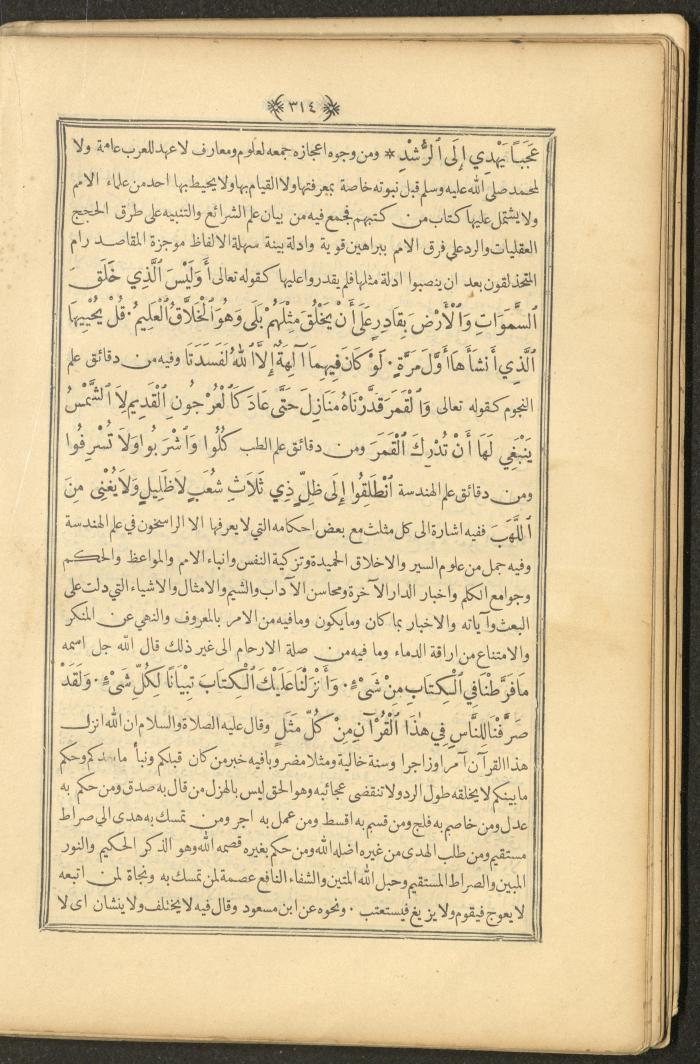 ٣١٤
عَجَبًا يَهْدِي إِلَى ٱلرُّشْدِ * ومن وجوه اعجازه جمعه لعلوم ومعارف لاعهد للعرب عامة ولا
لمحمد صلى الله عليه وسلم قبل نبوته خاصة بمعرفتها ولا القيام بها ولا يحيط بها احد من علماء الامم
ولا يشتمل عليها كتاب من كتبهم فجمع فيه من بيان علم الشرائع والتنبيه على طرق الحجج
العقليات والرد على فرق الامم ببراهين قوية وادلة بينة سهلة الالفاظ موجزة المقاصد رام
المتحذلقون بعد ان ينصبوا ادلة مثلها فلم يقدروا عليها كقوله تعالى أَوَلَيْسَ ٱلَّذِي خَلَقَ
ٱلسَّمٰوَاتِ وَٱلْأَرْضَ بِقَادِرٍ عَلَى أَنْ يَخْلُقَ مِثْلَهُمْ بَلَى وَهُوَ ٱلْخَلَّاقُ ٱلْعَلِيمُ ٠ قُلْ يُحْيِيهَا
ٱلَّذِي أَنْشَأَهَا أَوَّلَ مَرَّةٍ ٠ لَوْ كَانَ فِيهِمَا آلِهَةٌ إِلَّا ٱللهُ لَفَسَدَتَا وفيه من دقائق علم
النجوم كقوله تعالى وَٱلْقَمَرَ قَدَّرْنَاهُ مَنَازِلَ حَتَّى عَادَ كَٱلْعُرْجُونِ ٱلْقَدِيمِ لَا ٱلشَّمْسُ
يَنْبَغِي لَهَا أَنْ تُدْرِكَ ٱلْقَمَرَ ومن دقائق علم الطب كُلُوا وَٱشْرَبُوا وَلَا تُسْرِفُوا
ومن دقائق علم الهندسة ٱنْطَلِقُوا إِلَى ظِلٍّ ذِي ثَلَاثِ شُعَبٍ لَا ظَلِيلٍ وَلَا يُغْنِى مِنَ
ٱللَّهَبَ ففيه اشارة الى كل مثلث مع بعض احكامه التي لا يعرفها الا الراسخون في علم الهندسة
وفيه جمل من علوم السير والاخلاق الحميدة وتزكية النفس وانباء الامم والمواعظ والحكم
وجوامع الكلم واخبار الدار الآخرة ومحاسن الآداب والشيم والامثال والاشياء التي دلت على
البعث وآياته والاخبار بما كان وما يكون وما فيه من الامر بالمعروف والنهي عن المنكر
والامتناع من اراقة الدماء وما فيه من صلة الارحام الى غير ذلك قال الله جل اسمه
مَا فَرَّطْنَا فِي ٱلْكِتَابِ مِنْ شَىْءٍ ٠ وَأَنْزَلْنَا عَلَيْكَ ٱلْكِتَابَ تِبْيَانًا لِكُلِّ شَىْءٍ ٠ وَلَقَدْ
صَرَّفْنَا لِلنَّاسِ فِي هٰذَا ٱلْقُرْآنِ مِنْ كُلِّ مَثَلٍ وقال عليه الصلاة والسلام ان الله انزل
هذا القرآن آمرا وزاجرا وسنة خالية ومثلا مضروبا فيه خبر من كان قبلكم ونبأ ما بعدكم وحكم
ما بينكم لا يخلقه طول الرد ولا تنقضى عجائبه وهو الحق ليس بالهزل من قال به صدق ومن حكم به
عدل ومن خاصم به فلج ومن قسم به اقسط ومن عمل به اجر ومن تمسك به هدى الى صراط
مستقيم ومن طلب الهدى من غيره اضله الله ومن حكم بغيره قصمه الله وهو الذكر الحكيم والنور
المبين والصراط المستقيم وحبل الله المتين والشفاء النافع عصمة لمن تمسك به ونجاة لمن اتبعه
لا يعوج فيقوم ولا يزيغ فيستعتب ٠ ونحوه عن ابن مسعود وقال فيه لا يختلف ولا ينشان اى لا